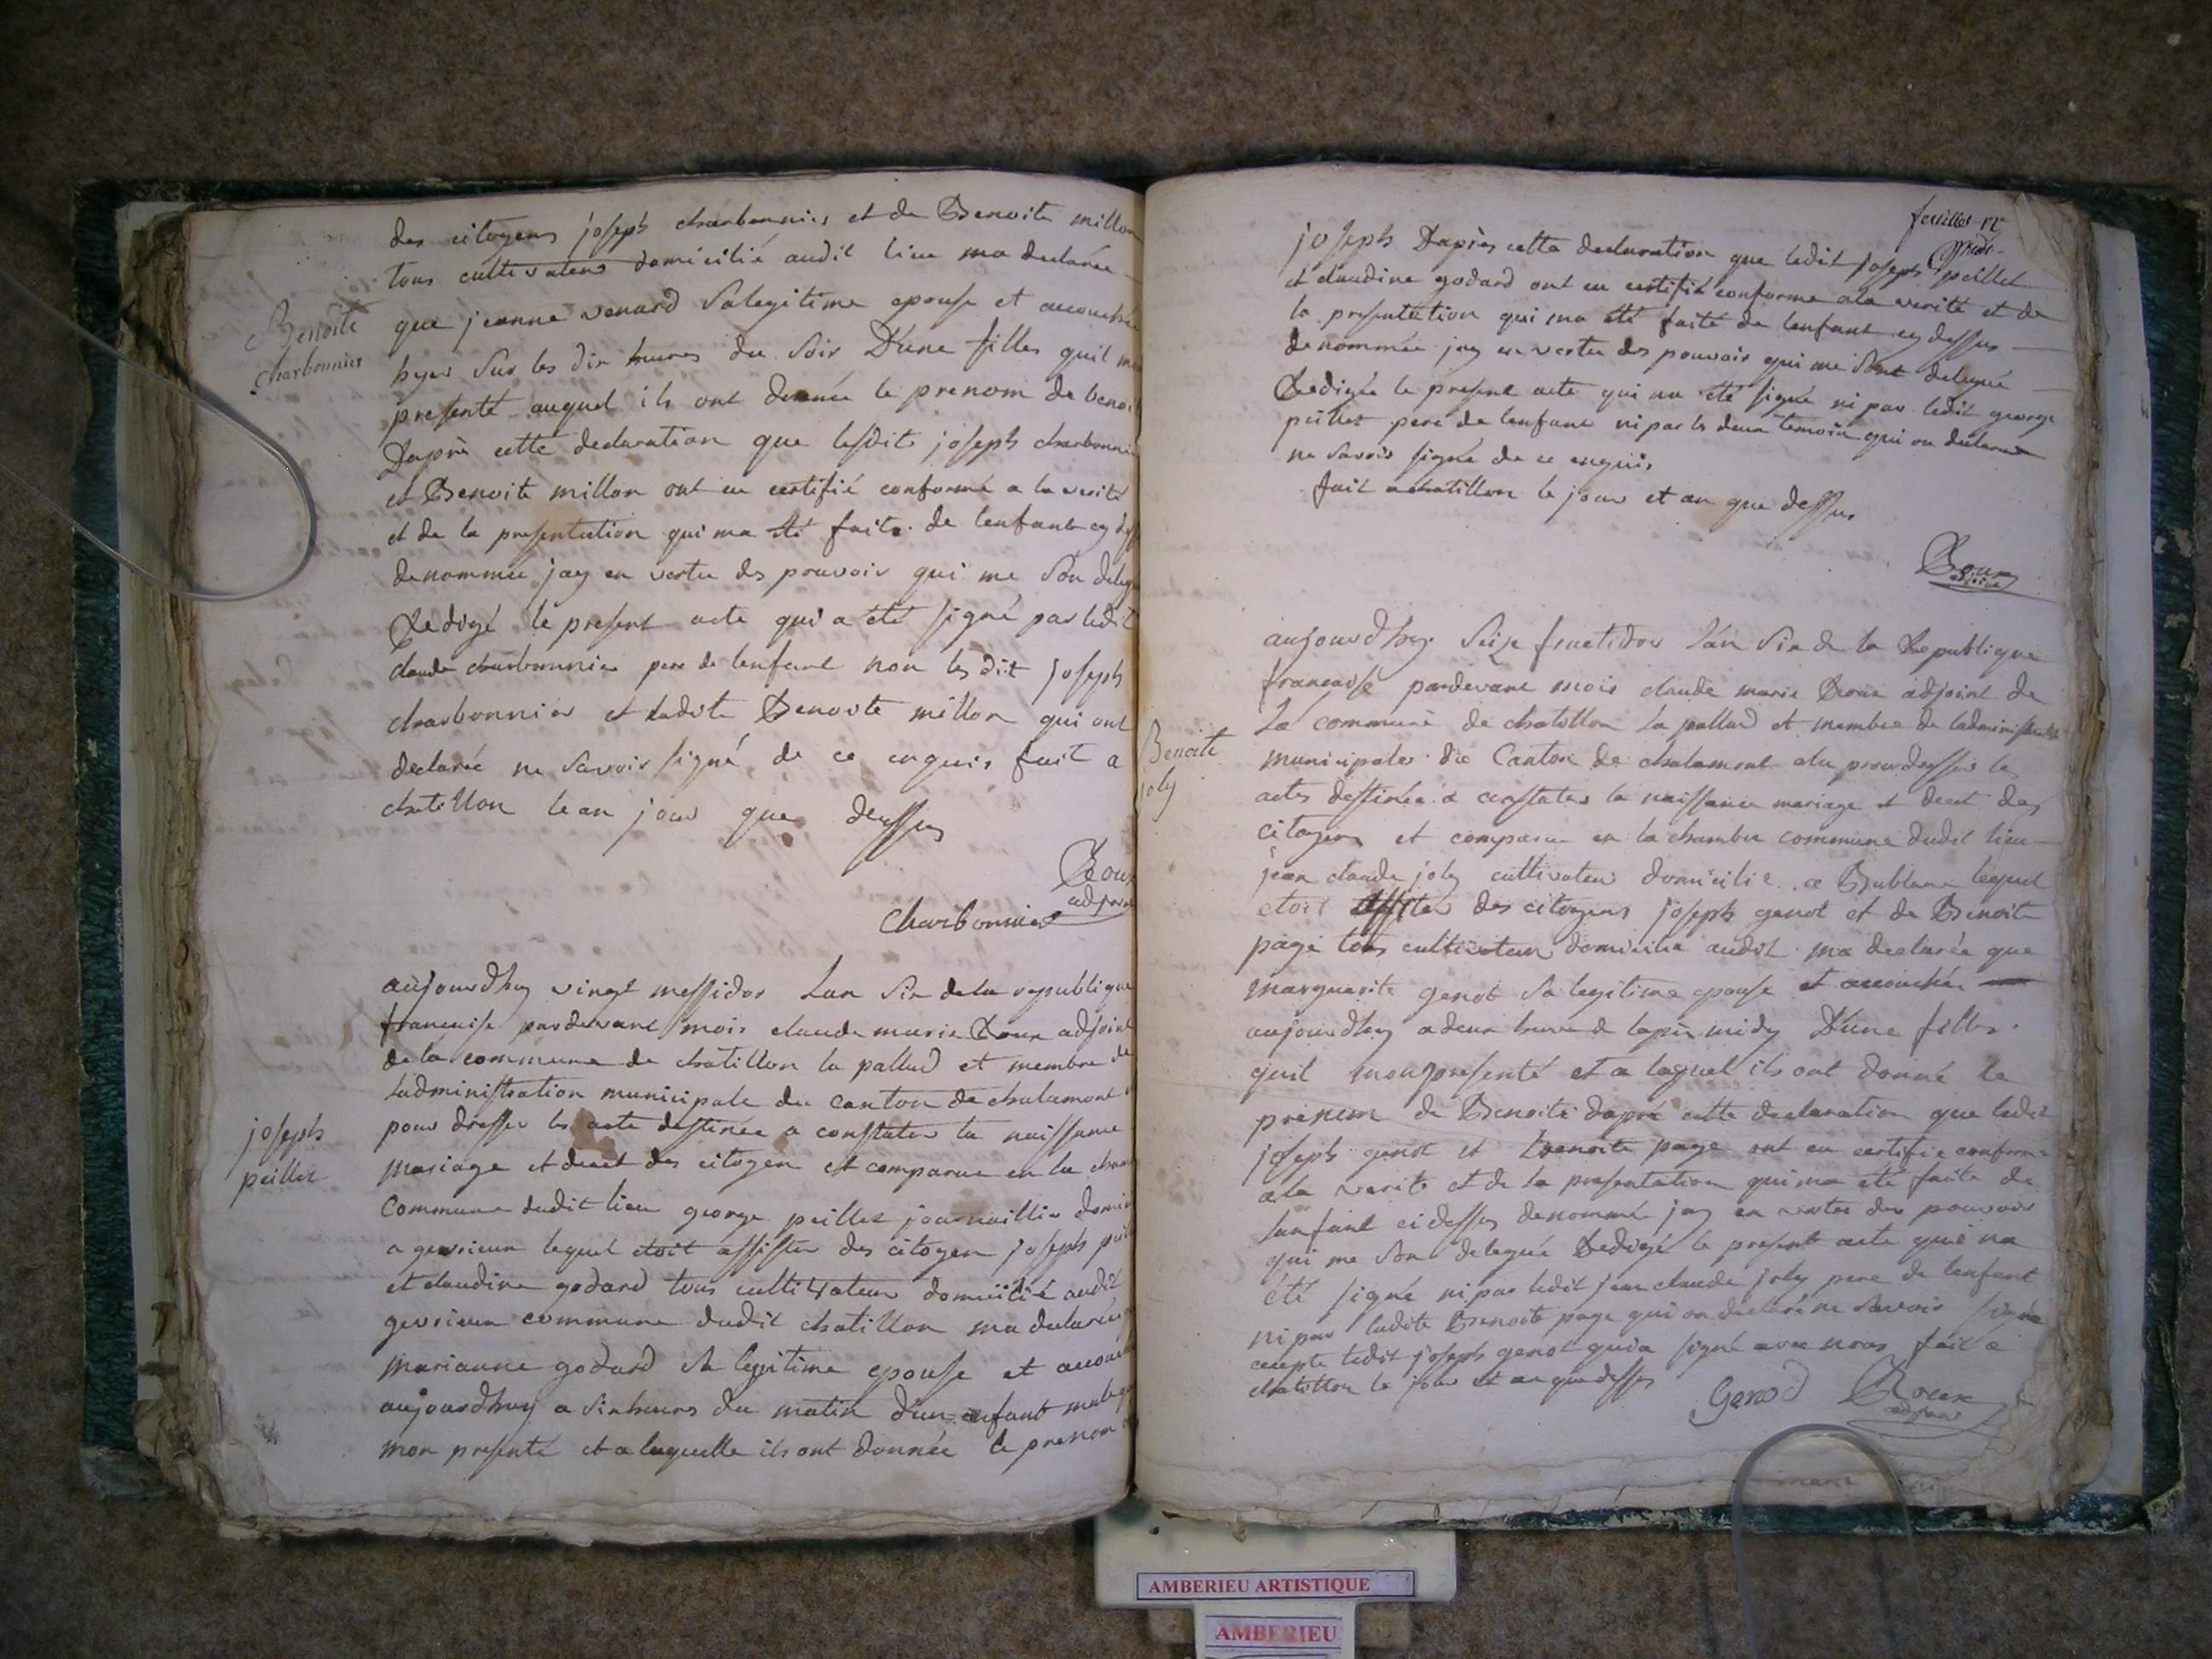 des citoyens joseph charbonnier et de Benoite millon
tous cultivateur domicilié audit lieu ma declarée
Benoite
charbonnier
que jeanne venard sa legitime epouse et accouchée
hyer sur les dix heures du soir D'une filles quil ma
presenté auquel ils ont donnée le prenom de benoit
Daprè cette declaration que lesdits joseph charbonnier
et Benoite millon ont eu certifié conforme a la verité
et de la presentation qui ma été faite de lenfant cy dess
denommée jay en vertu des pouvoir qui me son delegu
Redigé le present acte qui a été signé par ledit
claude charbonnier pere de lenfant non les dit joseph
charbonnier et ladite Benoite millon qui ont
declarée ne savoir signé de ce enquis fait a
chatillon le an jour que dessus
Roux
adjoint
Charbonnier
aujourdhuy vingt messidor Lan six de la republique
francaise pardevant mois claude marie Roux adjoint
de la commune de chatillon la pallud et membre de
Ladministration municipale du canton de chalamont
joseph
peillet
pour dresser les acte destinée a constater la naissance
mariage et decet des citoyen et comparue en la cham
Commune dudit lieu george peillet journaillier domici
a gevrieux lequel etoit assister des citoyen joseph peil
et claudine godard tous cultivateur domicilié audit
gevrieux commune dudit chatillon ma declarée
marianne godard sa legitime epouse et accouch
aujourdhuy a six heures du matin dun enfant male qu
mon presenté et a laquelle ils ont donnée le prenom d
feuillet
joseph Daprès cette declaration que ledit joseph peillet
et claudine godard ont eu certifié conforme a la verité et de
la presentation qui ma été faite de lenfant cy dessus
denommée jay en vertu des pouvoir qui me sont delegué
Redigée le present acte qui na été signé ni par ledit george
peillet pere de lenfant ni par les deux temoin qui on declaree
ne savoir signé de ce enquis
fait a chatillon le jour et an que dessus
Roux
adjoint
aujourdhuy seize fructidor l'an six de la Republique
francaise pardevant mois claude marie Roux adjoint de
La commune de chatillon la pallud et membre de ladministration
Benoite
joly
municipales du Canton de chalamont elu pour dresser les
actes destinée a constater la naissance mariage et decet des
citoyens et comparue en la chambre commune dudit lieu
jean claude joly cultivateur domicilié a Bublanne lequel
etoit assister des citoyens joseph genot et de Benoite
page tous cultivateur domicilié audit ma declarée que
marguerite genot sa legitime epouse et accouchée
aujourdhuy a deux heure de laprès midy D'une filles
quil mon presenté et a laquel ils ont donné le
prenom de Benoite daprè cette declaration que ledit
joseph genot et benoite page ont eu certifie conforme
a la verite et de la presentation qui ma été faite de
lenfant ci dessus denommé jay en vertu des pouvoir
qui me son deleguée Redigé le present acte qui na
été signé ni par ledit jean claude joly pere de lenfant
ni par ladite Benoite page qui on declaré ne savoir signée
excepte ledit joseph genot qui a signé avec nous fait a
chatillon le jour et an que dessus
Genod Roux
adjoint
marie
AMBERIEU ARTISTIQUE
AMBERIEU